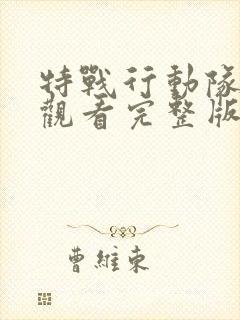 特戰行動隊
觀看完整版
曹維東